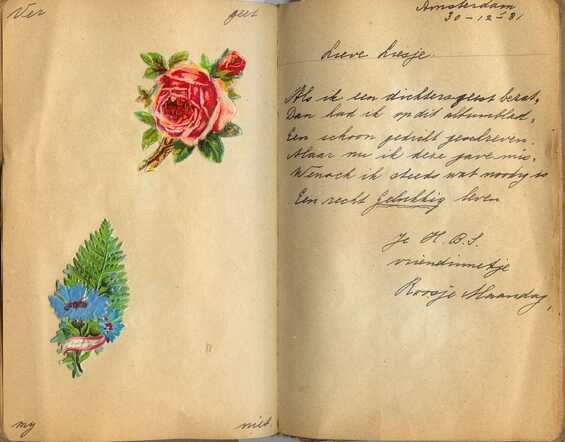 Ver geet
my niet
Amsterdam
30-12-31
Lieve Liesje
Als ik een dichtersgeest bezat,
Dan had ik op dit albumblad,
Een schoon gedicht geschreven.
Maar nu ik deze gave mis,
Wensch ik steeds wat noodig is
Een recht Gelukkig leven
Je H.B.S.
vriendinnetje
Roosje Maandag,